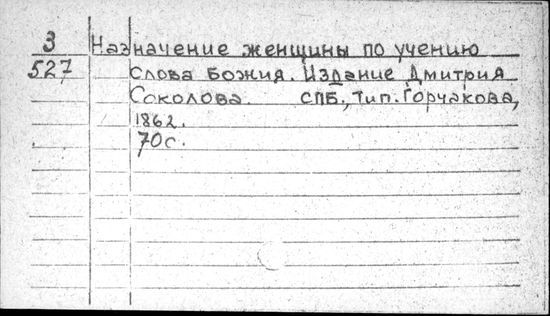 3 Назначение женщины по учению
527 Слова Божия. Издание Дмитрия
Соколова. СПБ., Тип. Горчакова,
1862.
70 с.